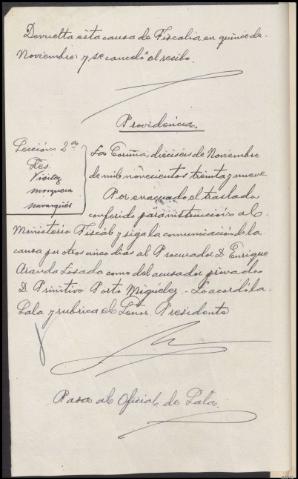 Devuelta esta causa de Fiscalia en quince de
Noviembre y se canceló el recibo.
Providencia
Sección 2ª
Sres.
La Coruña, dieciseis de Noviembre
de mil novecientos treinta y nueve
Por evacuado el traslado
conferido para instruccion al
Ministerio Fiscal y siga la comunicacion de la
causa por otros cinco dias al Procurador D. Enrique
Aranda Losada como del acusador privado
D. Primitivo Porto Miguelez. Lo acordó la
Sala y rubrica el Señor Presidente
Pasa al Oficial de Sala.